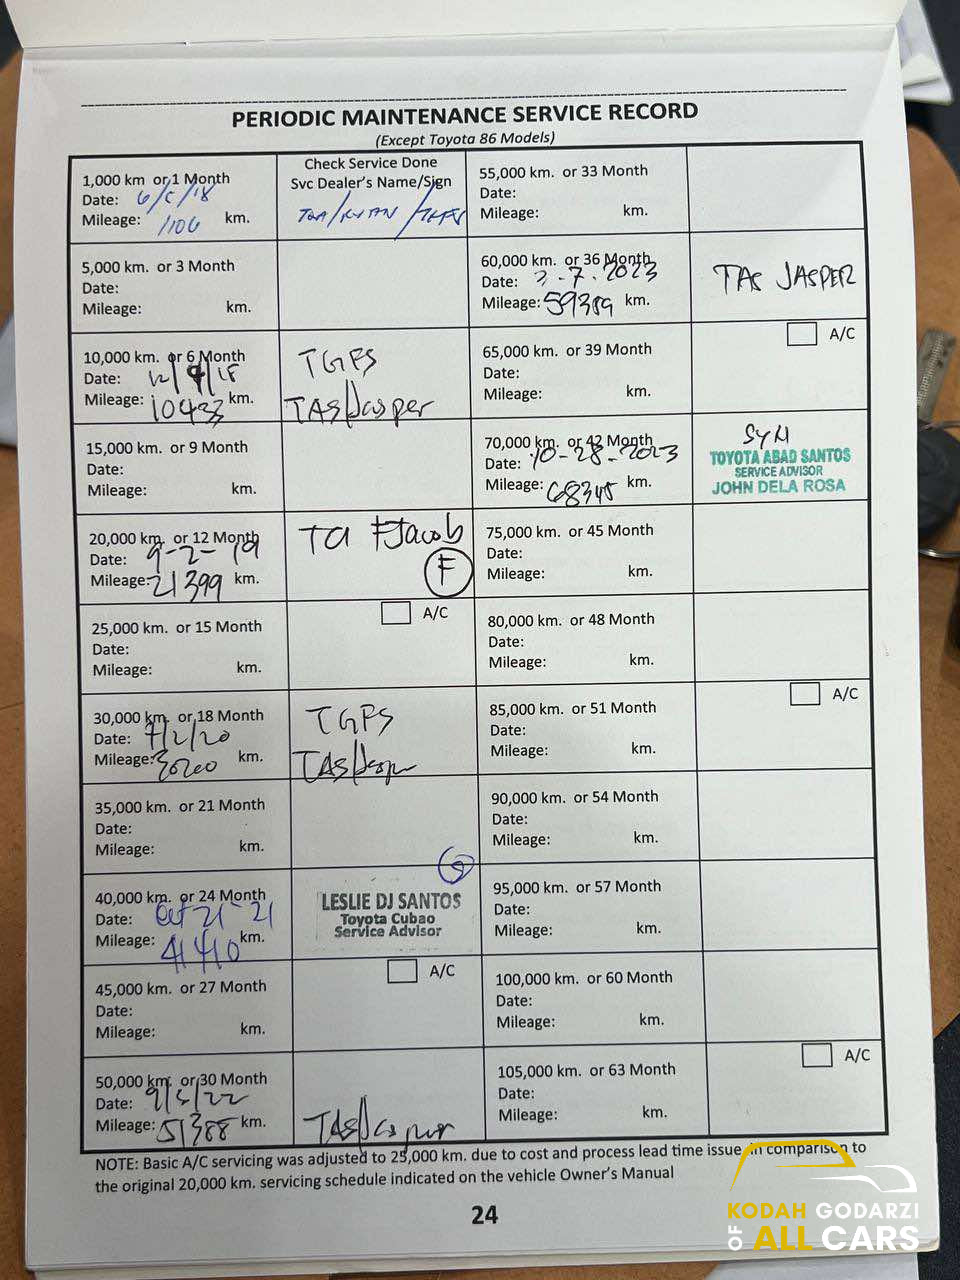 PERIODIC MAINTENANCE SERVICE RECORD
(Except Toyota 86 Models)
1,000 km or 1 Month
Date: 6/5/18
Mileage: 1106 km.
Check Service Done
Svc Dealer's Name/Sign
5,000 km. or 3 Month
Date:
Mileage: km.
10,000 km. or 6 Month
Date: 12/9/18
Mileage: 10433 km.
TGPS
TAS/Jasper
15,000 km. or 9 Month
Date:
Mileage: km.
20,000 km. or 12 Month
Date: 9-2-19
Mileage: 21399 km.
FJacob
F
25,000 km. or 15 Month
Date:
Mileage: km.
A/C
30,000 km. or 18 Month
Date: 7/2/20
Mileage: 30200 km.
TGPS
TAS/Jasper
35,000 km. or 21 Month
Date:
Mileage: km.
40,000 km. or 24 Month
Date: Oct 21-21
Mileage: 41410 km.
LESLIE DJ SANTOS
Toyota Cubao
Service Advisor
45,000 km. or 27 Month
Date:
Mileage: km.
A/C
50,000 km. or 30 Month
Date: 9/5/22
Mileage: 51388 km.
TAS/Jasper
55,000 km. or 33 Month
Date:
Mileage: km.
60,000 km. or 36 Month
Date: 3-7-2023
Mileage: 59389 km.
TAS JASPER
65,000 km. or 39 Month
Date:
Mileage: km.
A/C
70,000 km. or 42 Month
Date: 10-28-2023
Mileage: 68345 km.
TOYOTA ABAD SANTOS
SERVICE ADVISOR
JOHN DELA ROSA
75,000 km. or 45 Month
Date:
Mileage: km.
80,000 km. or 48 Month
Date:
Mileage: km.
85,000 km. or 51 Month
Date:
Mileage: km.
A/C
90,000 km. or 54 Month
Date:
Mileage: km.
95,000 km. or 57 Month
Date:
Mileage: km.
100,000 km. or 60 Month
Date:
Mileage: km.
105,000 km. or 63 Month
Date:
Mileage: km.
A/C
NOTE: Basic A/C servicing was adjusted to 25,000 km. due to cost and process lead time issue in comparison to
the original 20,000 km. servicing schedule indicated on the vehicle Owner's Manual
24
KODAH GODARZI
OF ALL CARS